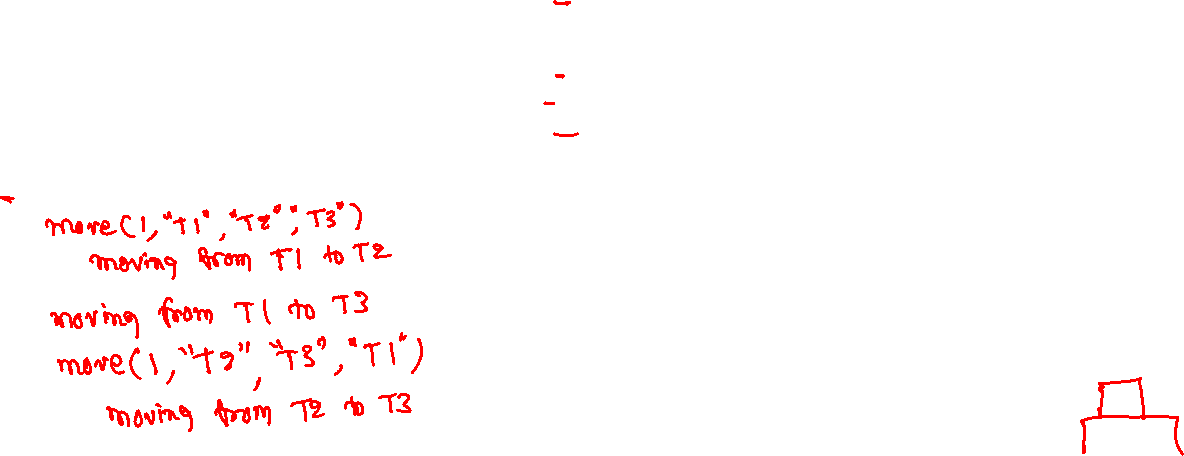 move(1,"T1","T2","T3")
moving from T1 to T2
moving from T1 to T3
move(1,"T2","T3","T1")
moving from T2 to T3